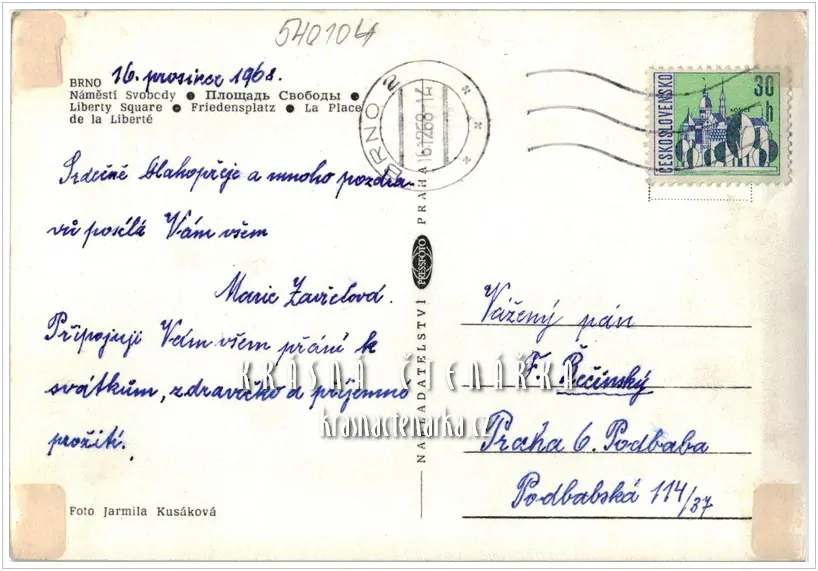 540104
16. prosinec 1968.
BRNO
Náměstí Svobody ● Площадь Свободы ●
Liberty Square ● Friedensplatz ● La Place
de la Liberté
BRNO
16.12.68-14
ČESKOSLOVENSKO
30
h
KOŠICE
Srdečně blahopřeje a mnoho pozdra-
vů posílá Vám všem
Marie Zavřelová.
Připojuji Vám všem přání k
svátkům, zdravíčko a příjemné
prožití.
Foto Jarmila Kusáková
NAKLADATELSTVÍ PRESSFOTO PRAHA
Vážený pán
F. Řečinský
Praha 6. Podbaba
Podbabská 114/37
KRÁSNÁ ČTENÁŘKA
kramactenarka.cz